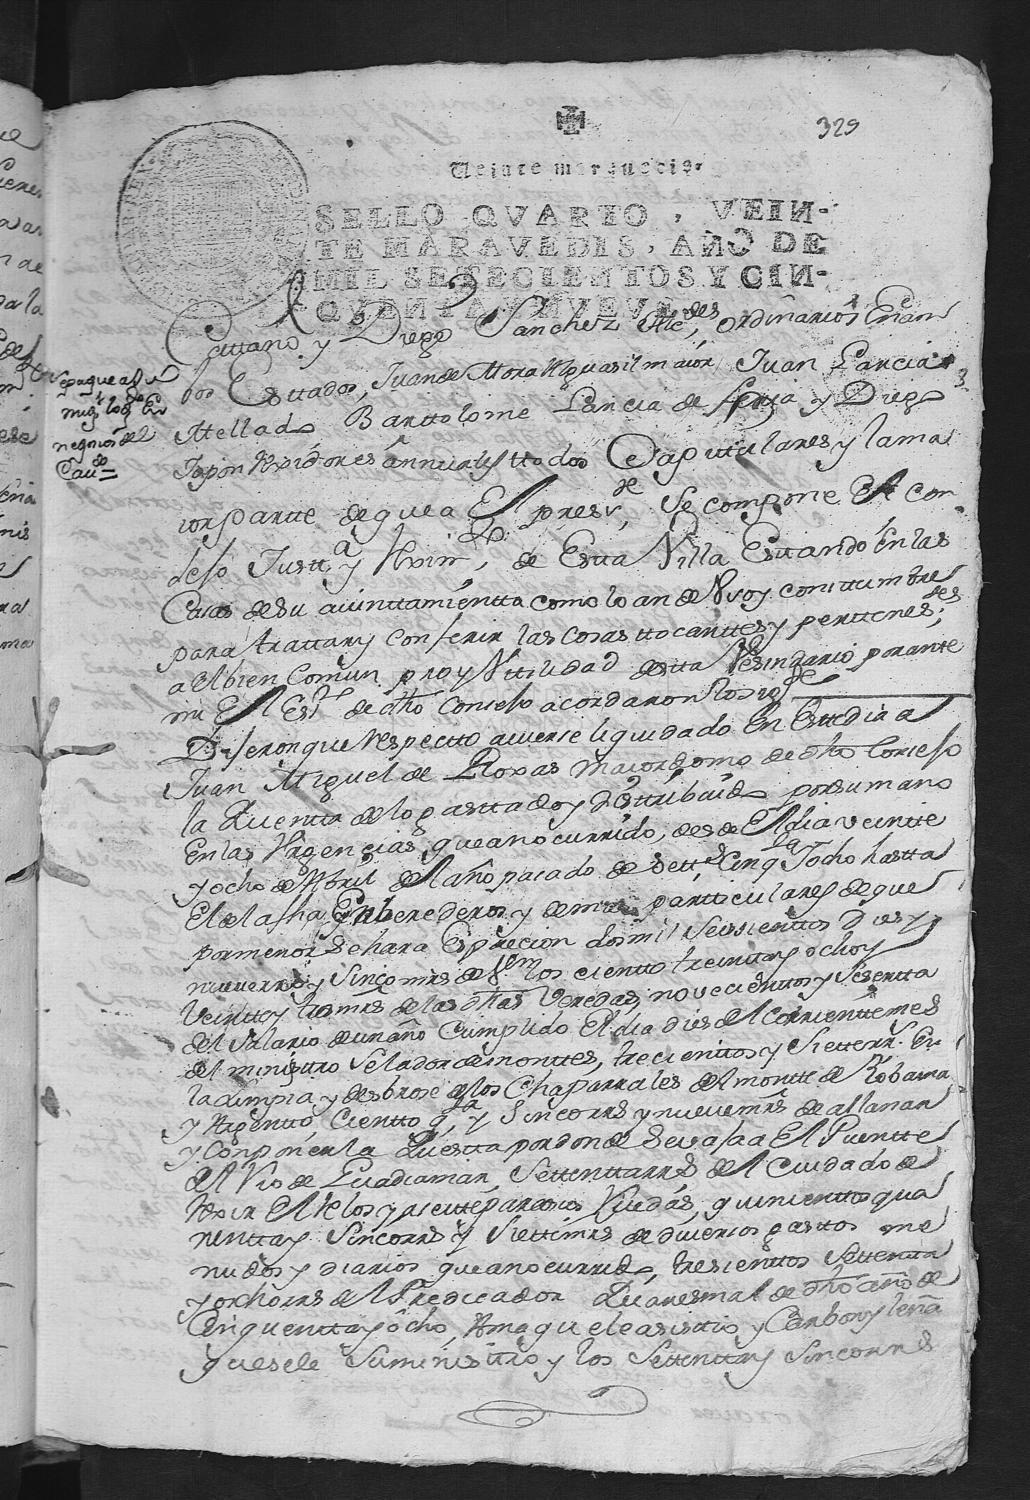 329
Veinte maravedis.
SELLO QVARTO, VEIN-
TE MARAVEDIS, AÑO DE
MIL SETECIENTOS Y CIN-
QVENTA Y NUEVE
y Diego Sanchez Alc.des ordinarios En am
bos Esttados, Juan de Mora Alguasil maior, Juan Garcia
Mellado Barttolome Garcia de y Diego
Rexidores annuales ttodos Capitulares y la ma
ior partte de que a El press.te se compone El con
sejo Justt.a y Rexim.to de Esta Villa Estando En las
Casas de su aiunttamientto como lo an de Uso y costtumbre
para trattar y conferir las cosas ttocanttes y perttenes.tes
a el bien Comun pro y Utilidad de stta Vesindario por ante
mi El Es.no de dho Consejo acordaron lo sig.te
Dijeron que respectto a averse liquidado En Estte dia a
Juan Miguel de Roxas maiordomo de dho Consejo
la Quentta de lo gasttado y disttribuido por su mano
En las Urgencias que an ocurrido, desde El dia veintte
y ocho de Abril del año pasado de Sett.os Cinq.ta y ocho hastta
El de la fha, En berederos y demas partticulares de que
por menor se hara Esprecion dos mil Seiscienttos dies y
nueve rrs y Sinco mrs de V.on los cientto treintta y ocho y
Veintte y tres mrs de las dhas Veredas, novecienttos y Sesentta
del Salario de un año Cumplido El dia dies del Corrientte mes
del ministtro Selador de monttes, trecienttos y Siette rr.s En
la Limpia y desbroso de los Chaparrales del montte de Robaina
y Argentto, Cientto q.ta y Sinco rrs y nueve mrs de allanar
y Conponer la Questta por donde se vaja a El Puentte
del Rio de Guadiamar, Settentta rrs del Cuidado de
Rexir El Relox y aseitte para sus Ruedas, quinienttos qua
renttay Sinco rrs y Siette mrs de diversos gasttos me
nudos y diarios que an ocurrido, tresienttos Settentta
y ocho rrs del Predicador Quaresmal de dho año de
Cinquentta y ocho, Ama que le asisttio y Carbon y leña
que se le Suministtro y los Settentta y Sinco rrs
Se pague a Ju.n
mig.l lo g.do En
negosios del
Cau.do